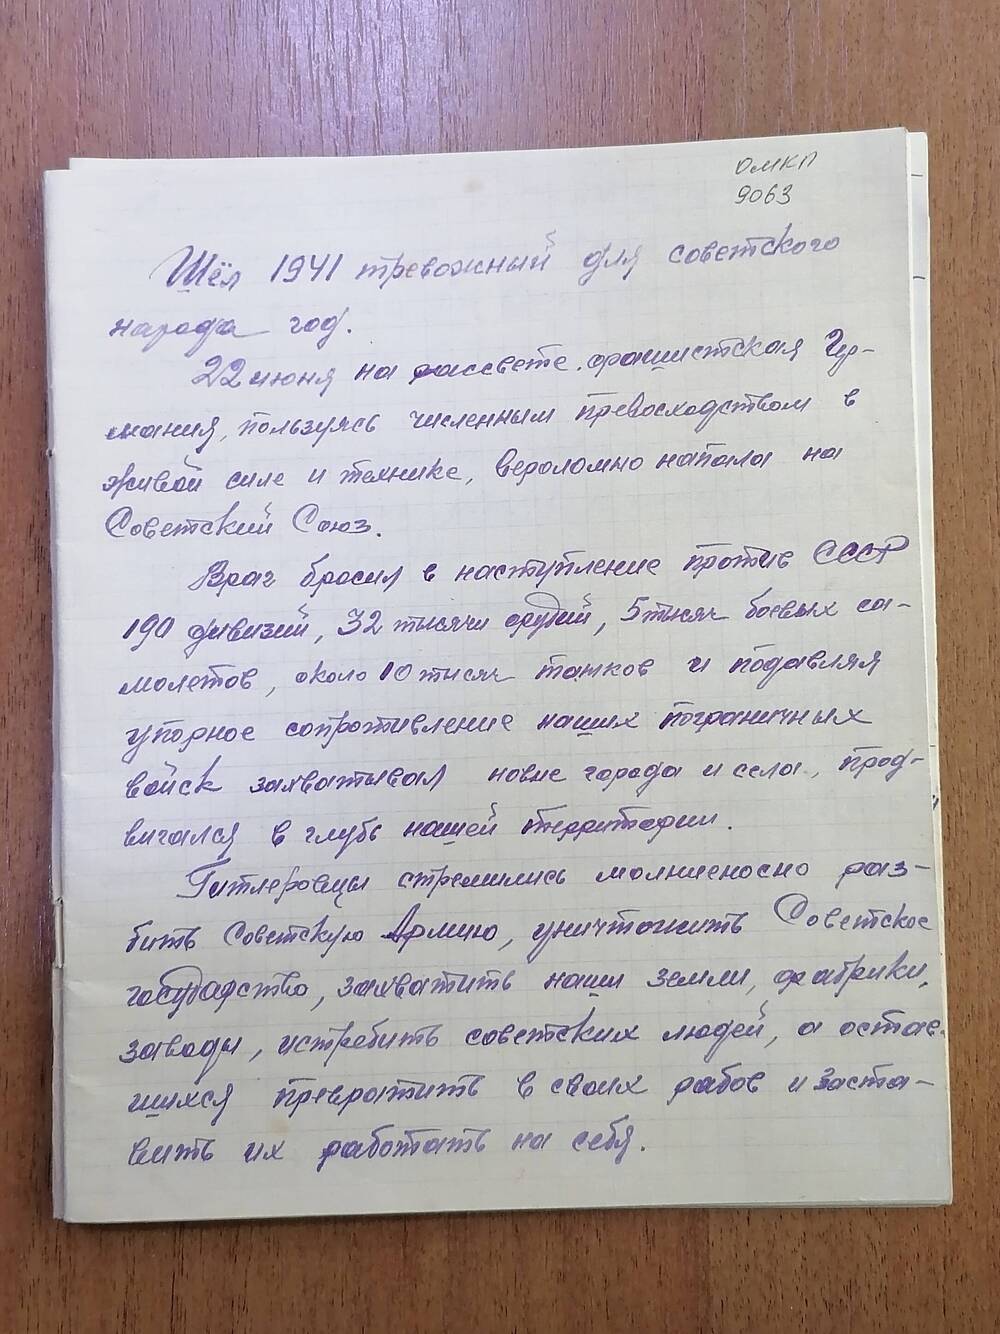 ОМКП
9063
Шёл 1941 тревожный для советского
народа год.
22 июня на рассвете фашистская Гер-
мания, пользуясь численным превосходством в
живой силе и технике, вероломно напала на
Советский Союз.
Враг бросил в наступление против СССР
190 дивизий, 32 тысячи орудий, 5 тысяч боевых са-
молетов, около 10 тысяч танков и подавляя
упорное сопротивление наших пограничных
войск захватывал новые города и села, прод-
вигался в глубь нашей территории.
Гитлеровцы стремились молниеносно раз-
бить Советскую Армию, уничтожить Советское
государство, захватить наши земли, фабрики,
заводы, истребить советских людей, а остав-
шихся превратить в своих рабов и заста-
вить их работать на себя.